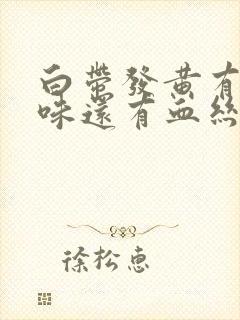 白帶發黃有
味還有血絲
徐松惠